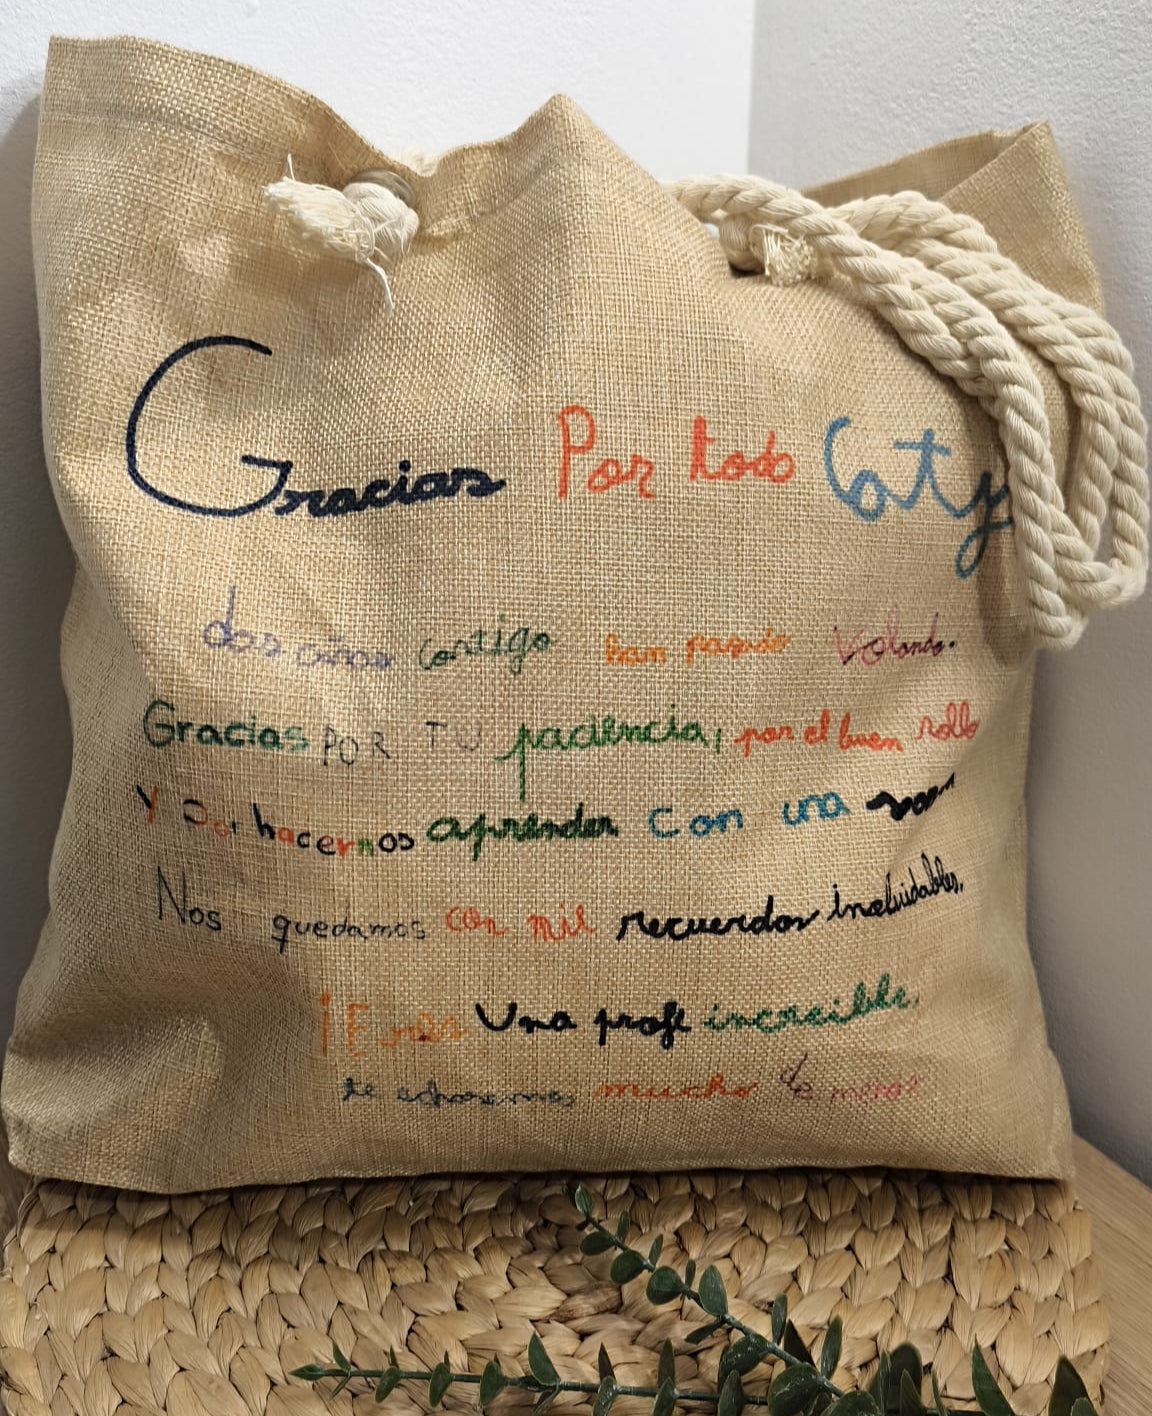 Gracias Por todo Caty
dos años contigo han pasado volando.
Gracias POR TU paciencia, por el buen rollo
Y Por hacernos aprender con una
Nos quedamos con mil recuerdos inolvidables.
¡Eres Una profe increible,
te echaremos mucho de menos